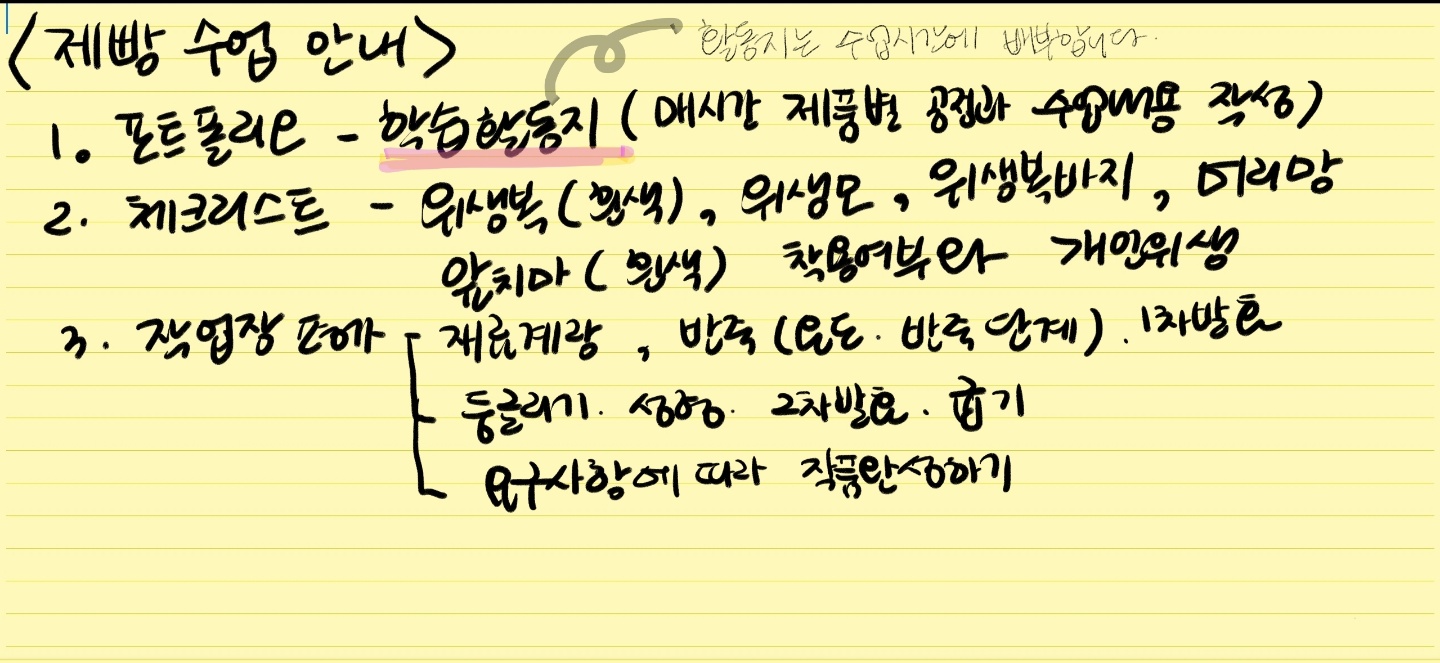 <제빵 수업 안내>
활동지는 수업시간에 배부합니다.
1. 포트폴리오 - 학습활동지 (매시간 제품별 공정과 수업내용 작성)
2. 체크리스트 - 위생복(흰색), 위생모, 위생복바지, 머리망
앞치마(흰색) 착용여부와 개인위생
3. 작업장 평가 - 재료계량, 반죽(온도·반죽단계). 1차발효
둥글리기. 성형. 2차발효. 굽기
요구사항에 따라 작품완성하기